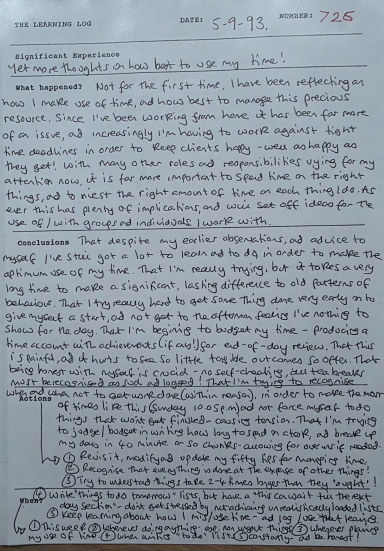 THE LEARNING LOG DATE: 5-9-93. NUMBER: 725
Significant Experience
Yet more thoughts on how best to use my time!
What happened? Not for the first time, I have been reflecting on
how I make use of time, ad how best to manage this precious
resource. Since I've been working from home it has been far more
of an issue, ad increasingly I'm having to work against tight
time deadlines in order to keep clients happy - well as happy as
they get! With many other roles ad responsibilities vying for my
attention now, it is far more important to spend time on the right
things, ad to invest the right amount of time on each thing I do. As
ever this has plenty of implications, ad will set off ideas for the
use of/with groups ad individuals I work with.
Conclusions That despite my earlier observations, ad advice to
myself I've still got a lot to learn ad to do, in order to make the
optimum use of my time. That I'm really trying, but it takes a very
long time to make a significant, lasting difference to old patterns of
behaviour. That I try really hard to get some thing done very early on to
give myself a start, ad not get to the afternoon feeling I've nothing to
show for the day. That I'm begining to budget my time - producing a
time account with achievements (if any!) for end-of-day review. That this
is painful, ad it hurts to see so little tangible outcomes so often. That
being honest with myself is crucial - no self-cheating, all tea breaks
must be recognised as such ad logged! That I'm trying to recognise
when and when not to get work done (within reason), in order to make the most
Actions of times like this (Sunday 10.05pm) ad not force myself to do
things that won't get finished - causing tension. That I'm trying
to judge/budget in working how long to spend on a task, ad break up
my days in 40 minute or so chunks - allowing for overuse if needed.
① Revisit, modify ad update my fifty tips for managing time.
② Recognise that everything is done at the expense of other things!
③ Try to understand things take 2-4 times longer than they "ought"!
④ Write "things to do tomorrow" lists, but have a "this can wait till the next
day section" - don't get stressed by not achieving unrealistically loaded lists.
⑤ Keep learning about how I use time - ad log/use that learning.
When?
① This week ② Whenever doing anything - esp. on urgent things ③ Whenever planning
my use of time ④ When writing "to do" lists ⑤ Constantly - ad be honest!